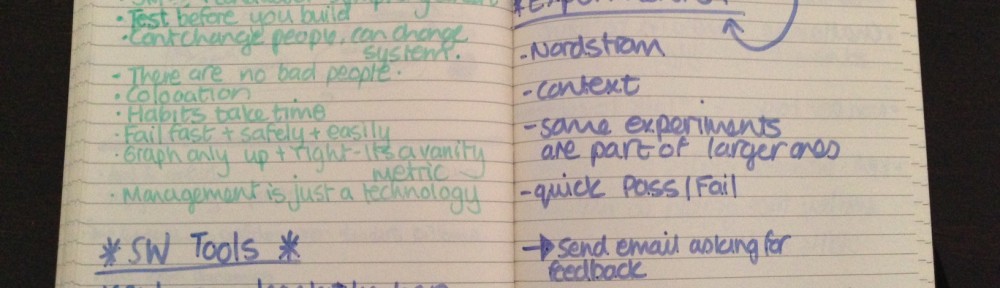 · Test before you build
· Cant change people, can change
system.
- There are no bad people.
· Colocation
· Habits take time
· Fail fast + safely + easily
· Graph only up + right - its a vanity
metric
· Management is just a technology
* SW Tools *
- Nordstrom
- context
- some experiments
are part of larger ones
- quick Pass/Fail
→ Send email asking for
feedback